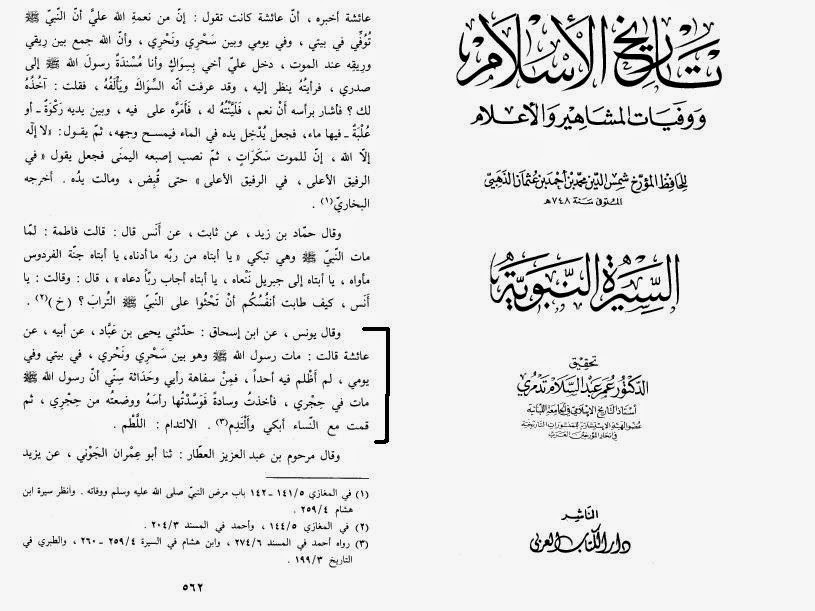 تاريخ الإسلام
ووفيات المشاهير والأعلام
للحافظ المؤرخ شمس الدين محمد بن أحمد بن عثمان الذهبي
المتوفى سنة ٧٤٨هـ
السيرة النبوية
تحقيق
الدكتور عمر عبد السلام تدمري
أستاذ التاريخ الإسلامي في الجامعة اللبنانية
الناشر
دار الكتاب العربي
عائشة أخبره ، أنّ عائشة كانت تقول : إنّ من نعمةِ الله عليَّ أنّ النّبيّ ﷺ
تُوُفّي في بيتي ، وفي يومي وبين سَحْرِي ونَحْرِي ، وأنّ الله جمع بين رِيقي
ورِيقِه عند الموت ، دخل عليّ أخي بِسِواكٍ وأنا مُسْنِدَةٌ رسولَ الله ﷺ إلى
صدري ، فرأيتُهُ ينظر إليه ، وقد عرفت أنّه السِّواكَ ويَأْلَفُهُ ، فقلت : آخُذُهُ
لك ؟ فأشار برأسه أَنْ نعم ، فَلَيَّنْتُهُ له ، فَأَمَرَّه على فيه ، وبين يديه رَكْوَةٌ ـ أو
عُلْبَةٌ ـ فيها ماء، فجعل يُدْخِل يده في الماء فيمسح وجهه، ثمّ يقول: «لا إلٰه
إلّا الله ، إنّ للموت سَكَرَاتٍ , ثم نصب إصبعه اليمنَى فجعل يقول « في
الرفيق الأعلى ، في الرفيق الأعلى » حتى قُبِض ، ومالت يدُه . أخرجه
البخاريّ(١) .
وقال حمّاد بن زيد ، عن ثابت ، عن أَنَس قال : قالت فاطمة : لمّا
مات النّبيّ ﷺ وهي تبكي « يا أبتاه من ربّه ما أدناه، يا أبتاه جنّة الفردوس
مأواه ، يا أبتاه إلى جبريل نَنْعاه ، يا أبتاه أجاب ربّاً دعاه » ، قال : وقالت : يا
أَنَس ، كيف طابت أنفُسُكُم أنْ تَحْثُوا على النّبيّ ﷺ التُرابَ ؟ (خ)(٢) .
وقال يونس ، عن ابن إسحاق : حدّثني يحيى بن عَبَّاد ، عن أبيه ، عن
عائشة قالت : مات رسول الله ﷺ وهو بين سَحْري ونَحْري ، في بيتي وفي
يومي ، لم أَظْلِم فيه أحداً ، فمِنْ سفاهة رأيي وحَدَاثة سِنّي أنّ رسول الله ﷺ
مات في حِجْري ، فأخذتُ وسادةً فَوَسَّدْتُها رأسَهُ ووضعتُه من حِجْري ، ثم
قمت مع النّساء أبكي وأَلْتَدِم(٣) . الالتدام : اللَّطْم .
وقال مرحوم بن عبد العزيز العطّار : ثنا أبو عِمْران الجَوْني ، عن يزيد
(١) في المغازي ١٤١/٥ ـ ١٤٢ باب مرض النبيّ صلى الله عليه وسلم ووفاته . وانظر سيرة ابن
هشام ٢٥٩/٤ .
(٢) في المغازي ١٤٤/٥ ، وأحمد في المسند ٢٠٤/٣ .
(٣) رواه أحمد في المسند ٢٧٤/٦ ، وابن هشام في السيرة ٢٥٩/٤ ـ ٢٦٠ ، والطبري في
التاريخ ١٩٩/٣ .
٥٦٢